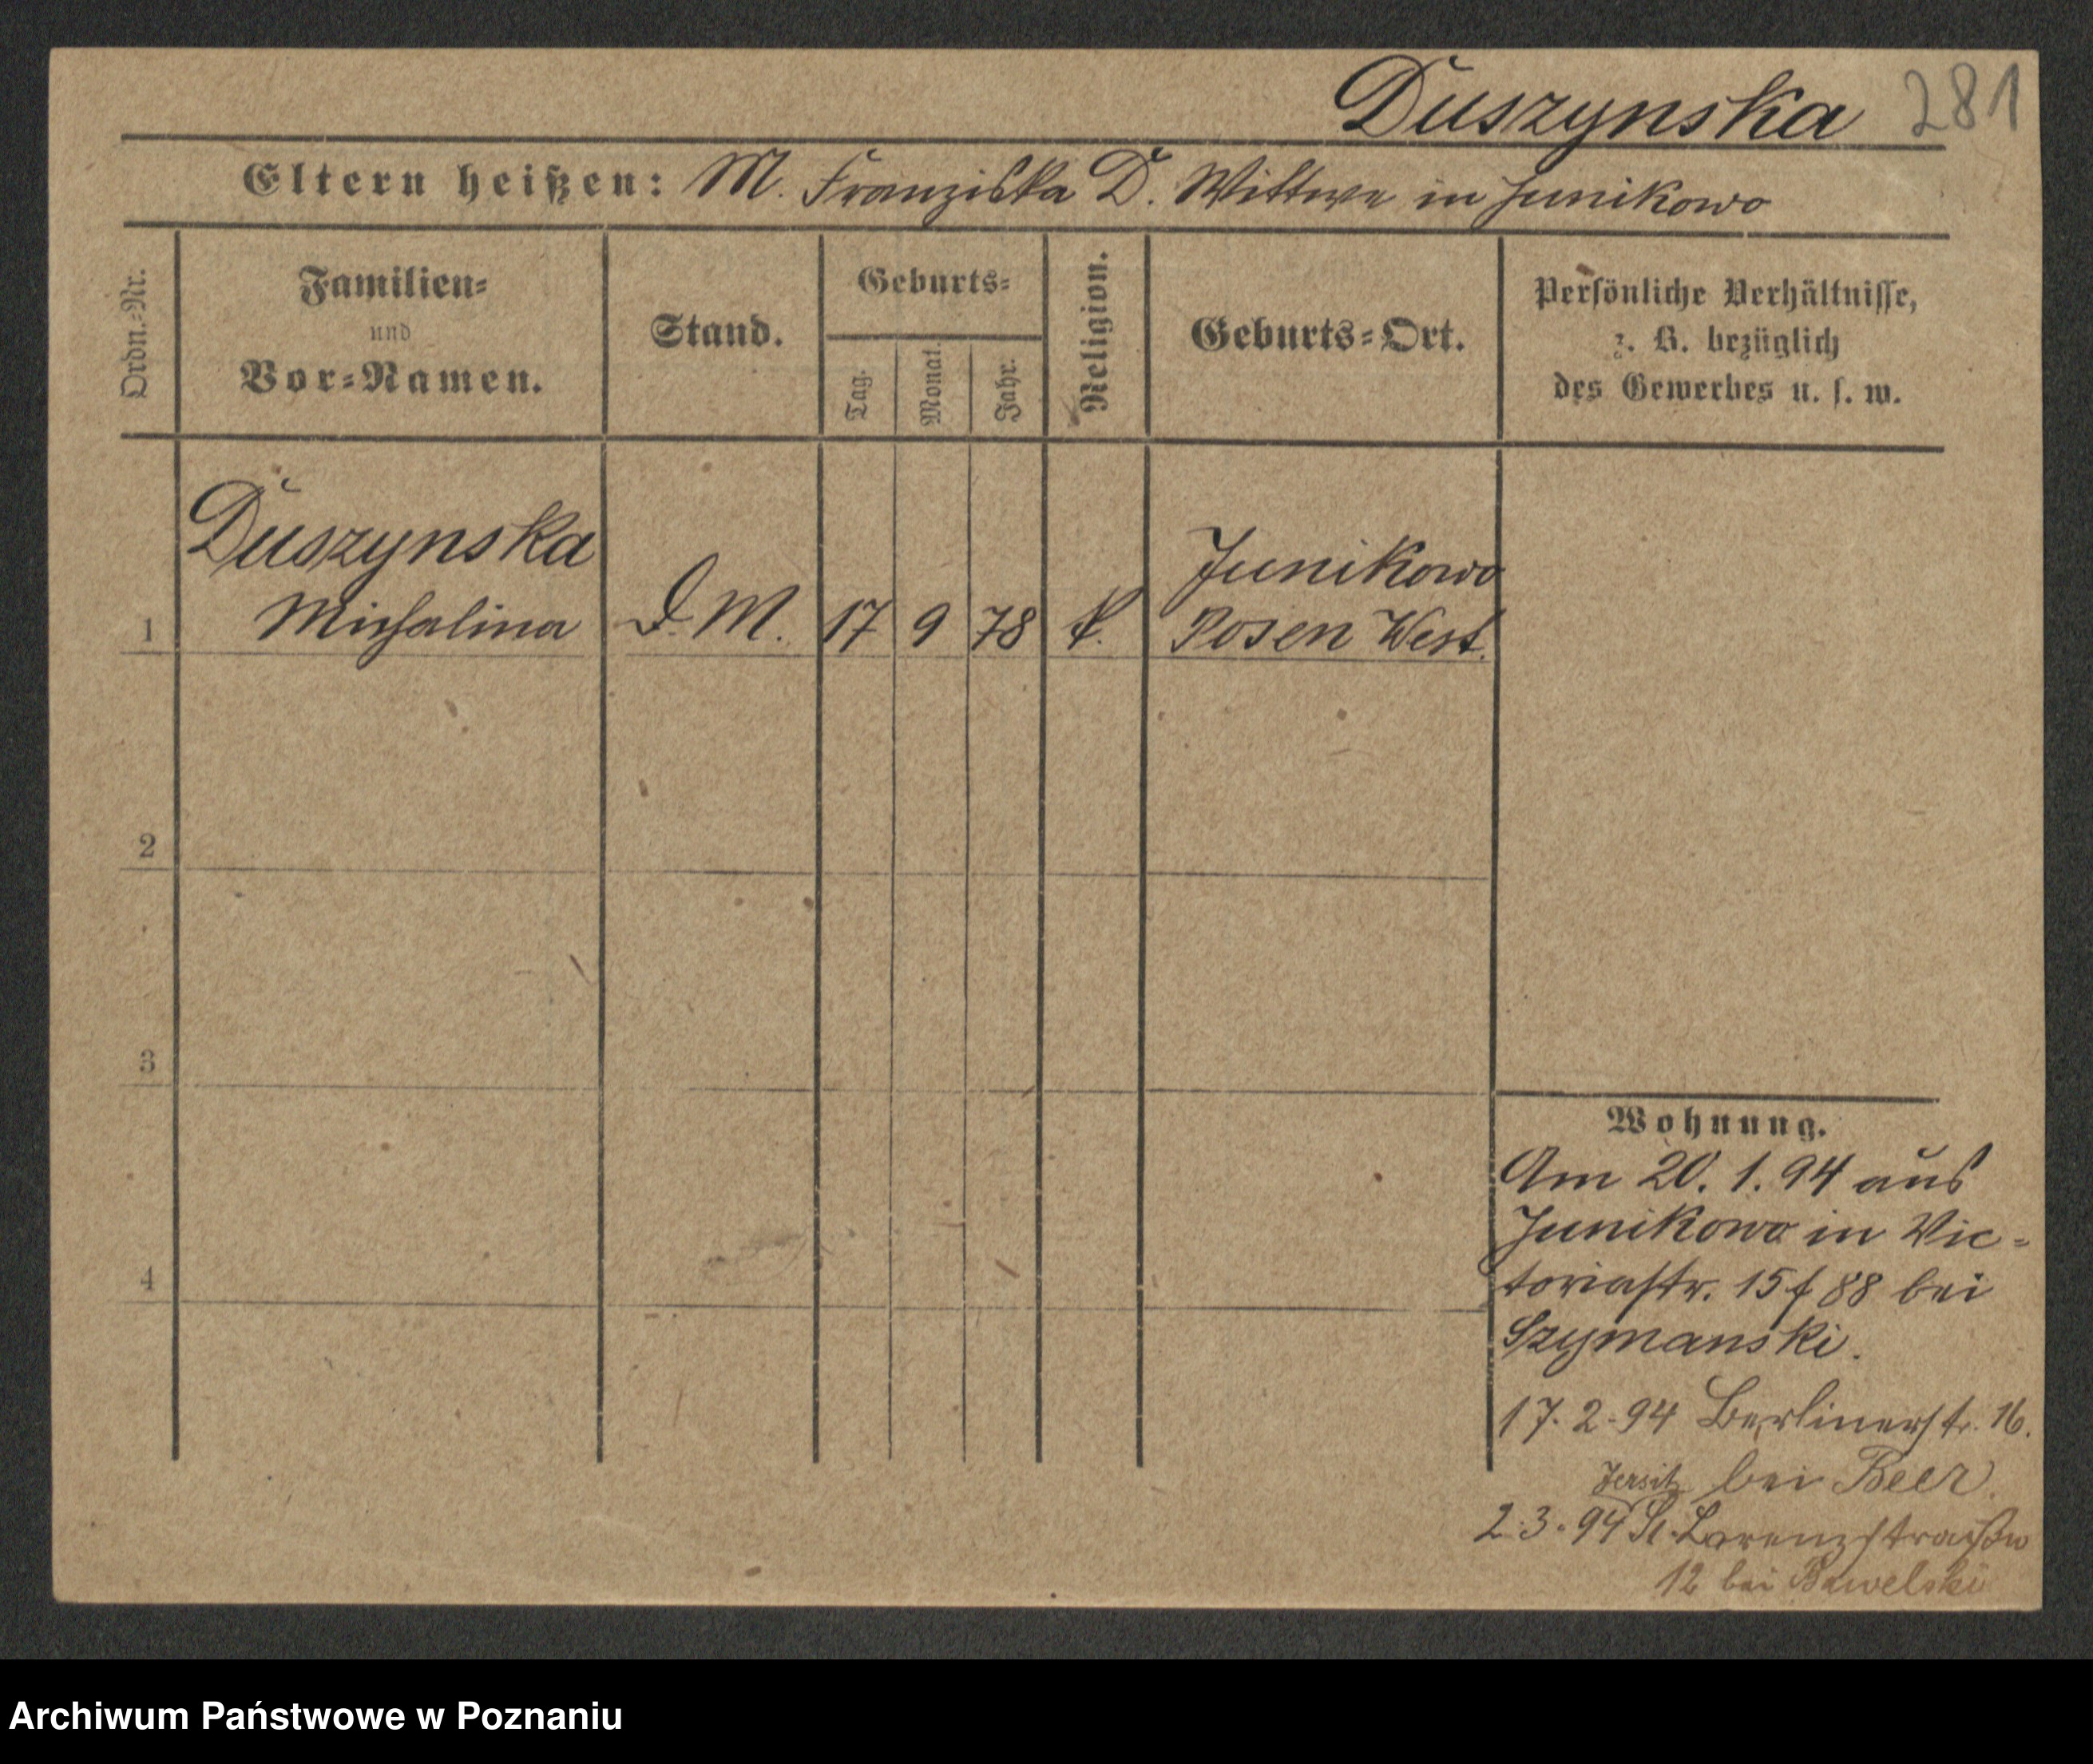 Duszynska 281
Eltern heißen: M. Franziska D. Wittwe in Junikowo
Ordn.-Nr.
Familien-
und
Vor-Namen.
Stand.
Geburts-
Tag.
Monat.
Jahr.
Religion.
Geburts-Ort.
Persönliche Verhältnisse,
z. B. bezüglich
des Gewerbes u. s. w.
Duszynska
Junikowo
1 Michalina D. M. 17 9 78 k. Posen West.
2
3
4
Wohnung.
Am 20. 1. 94 aus
Junikowo in Vic-
toriastr. 15 f 88 bei
Szymanski.
17. 2. 94 Berlinerstr. 16.
Jersitz bei Beer.
2. 3. 94 St. Lorenzstraße
12 bei
Archiwum Państwowe w Poznaniu